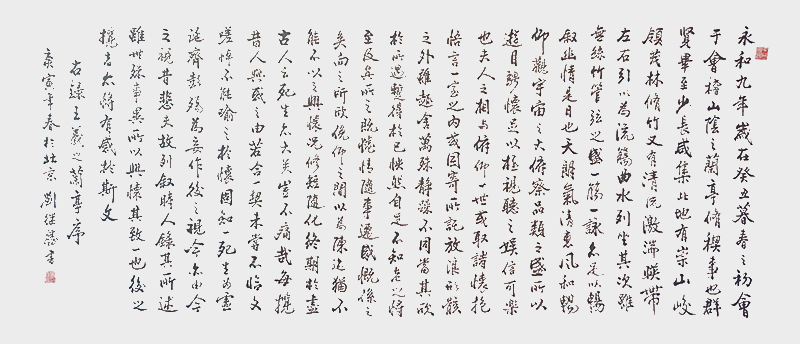 永和九年歲在癸丑暮春之初會
于會稽山陰之蘭亭脩禊事也群
賢畢至少長咸集此地有崇山峻
領茂林脩竹又有清流激湍暎帶
左右引以為流觴曲水列坐其次雖
無絲竹管弦之盛一觴一詠亦足以暢
敘幽情是日也天朗氣清惠風和暢
仰觀宇宙之大俯察品類之盛所以
遊目騁懷足以極視聽之娛信可樂
也夫人之相與俯仰一世或取諸懷抱
悟言一室之內或因寄所託放浪形骸
之外雖趣舍萬殊靜躁不同當其欣
於所遇暫得於己快然自足不知老之將
至及其所之既惓情隨事遷感慨係之
矣向之所欣俛仰之間以為陳迹猶不
能不以之興懷況修短隨化終期於盡
古人云死生亦大矣豈不痛哉每攬
昔人興感之由若合一契未嘗不臨文
嗟悼不能喻之於懷固知一死生為虛
誕齊彭殤為妄作後之視今亦由今
之視昔悲夫故列敘時人錄其所述
雖世殊事異所以興懷其致一也後之
攬者亦將有感於斯文
右錄王羲之蘭亭序
庚寅年春於北京劉繼書